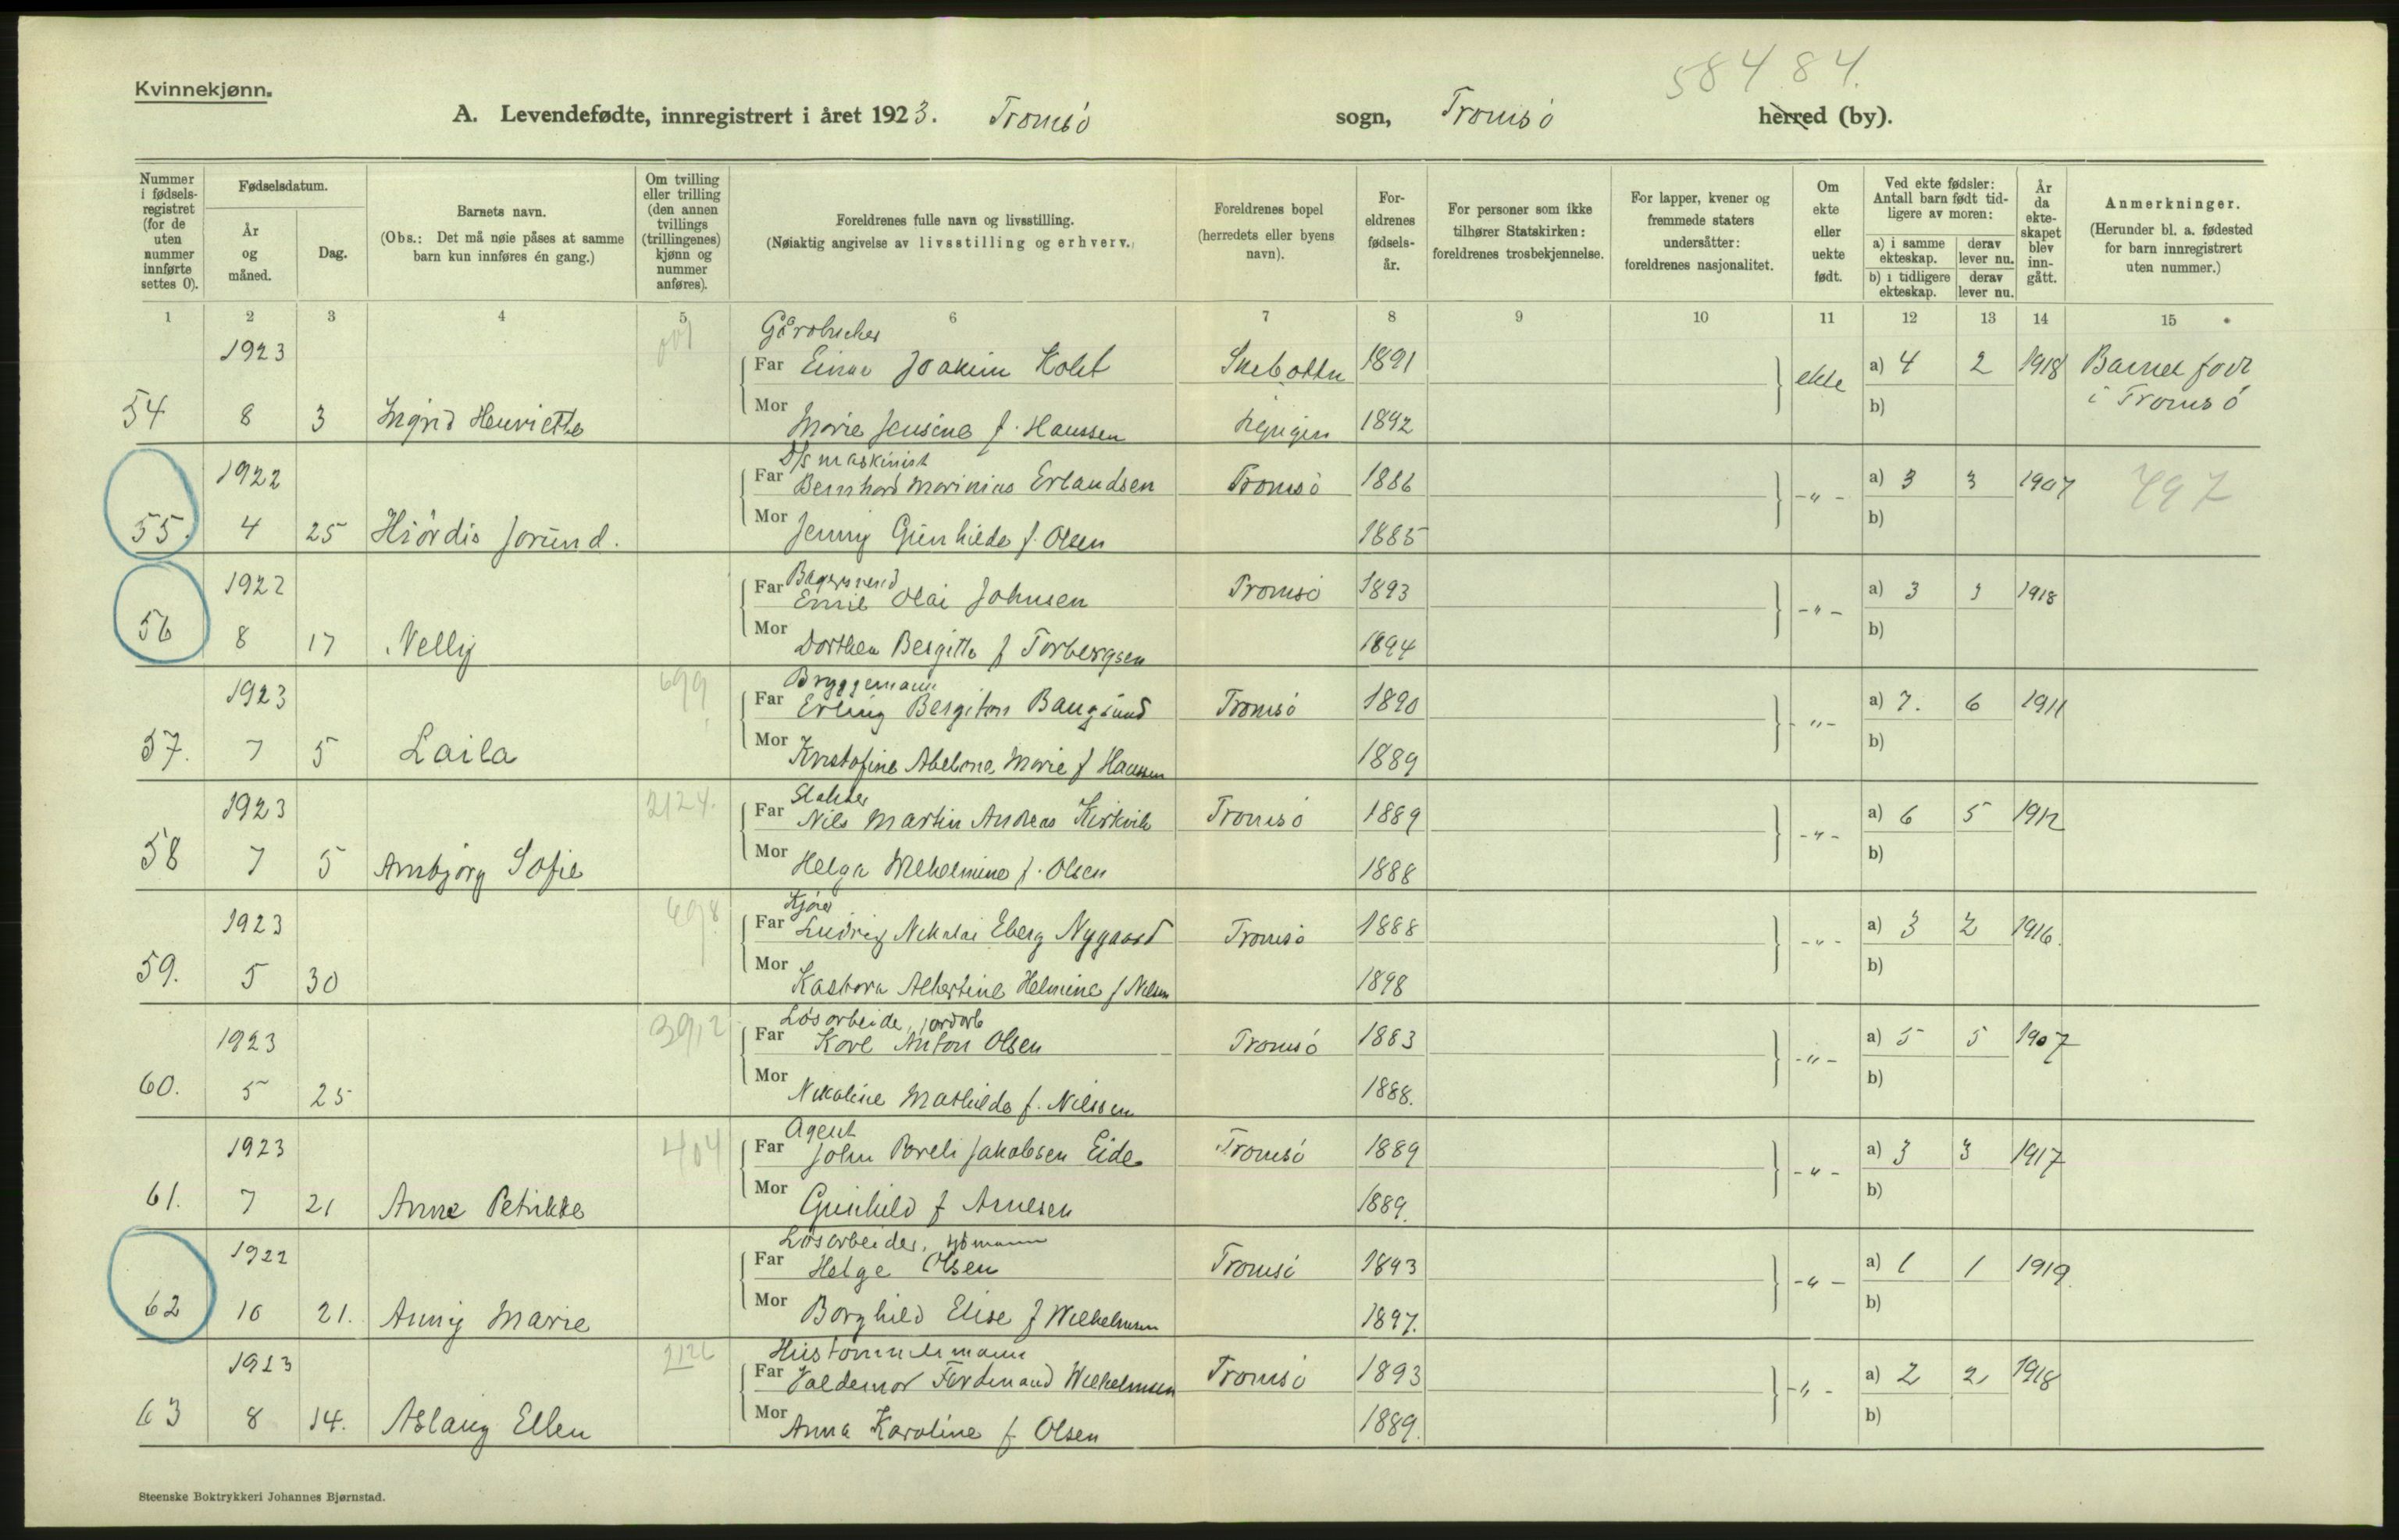 58484.
Kvinnekjønn.
A. Levendefødte, innregistrert i året 1923. Tromsö sogn, Tromsö herred (by).
Nummer i fødsels-registret (for de uten nummer innførte settes 0).
Fødselsdatum.
År og måned.
Dag.
Barnets navn.
(Obs.: Det må nøie påses at samme barn kun innføres én gang.)
Om tvilling eller trilling (den annen tvillings (trillingenes) kjønn og nummer anføres).
Foreldrenes fulle navn og livsstilling.
(Nøiaktig angivelse av livsstilling og erhverv.)
Foreldrenes bopel (herredets eller byens navn).
For-eldrenes fødsels-år.
For personer som ikke tilhører Statskirken: foreldrenes trosbekjennelse.
For lapper, kvener og fremmede staters undersåtter: foreldrenes nasjonalitet.
Om ekte eller uekte født.
Ved ekte fødsler: Antall barn født tid-ligere av moren:
a) i samme ekteskap. derav lever nu.
b) i tidligere ekteskap. derav lever nu.
År da ekte-skapet blev inn-gått.
Anmerkninger.
(Herunder bl. a. fødested for barn innregistrert uten nummer.)
1 2 3 4 5 6 7 8 9 10 11 12 13 14 15
Gårdbruker
1923 Far Einar Joakim Holst 1891 ekte a) 4 2 1918 Barnet født
54 8 3 Ingrid Henriette Mor Marie Jensine f. Hanssen Lyngen 1892 b) i Tromsö
D/S maskinist
1922 Far Bernhard Marinius Erlandsen Tromsö 1886 -"- a) 3 3 1907 797
55. 4 25 Hiördis Jorund. Mor Jenny Gunhilde f. Olsen 1885 b)
1922 Far Emil Olai Johnsen Tromsö 1893 -"- a) 3 3 1918
56 8 17 Nelly Mor Dorthea Bergitte f Torbergsen 1894 b)
699 Bryggemann
1923 Far Erling Bergiton Baugsund Tromsö 1890 -"- a) 7. 6 1911
57. 7 5 Laila Mor Kristofine Abelone Marie f Hanssen 1889 b)
2124. Slakter
1923 Far Nils Martin Andreas Kirkvik Tromsö 1889 -"- a) 6 5 1912
58 7 5 Arnbjörg Sofie Mor Helga Wilhelmine f. Olsen 1888 b)
698 Kjörer
1923 Far Ludvig Nikolai Eberg Nygaard Tromsö 1888 -"- a) 3 2 1916.
59. 5 30 Mor Kastora Albertine Helmine f Nilsen 1898 b)
3912 Lösarbeide, jordarb
1923 Far Karl Anton Olsen Tromsö 1883 -"- a) 5 5 1907
60. 5 25 Mor Nikoline Mathilde f. Nilssen 1888. b)
404 Agent
1923 Far John Pareli Jakobsen Eide Tromsö 1889 -"- a) 3 3 1917
61. 7 21 Anna Petrikke Mor Gunhild f Arnesen 1889. b)
Lösarbeider, sjömann
1922 Far Helge Olsen Tromsö 1893 -"- a) 1 1 1919.
62 10 21. Anny Marie Mor Borghild Elise f Wilhelmsen 1897. b)
2126 Hustömmermann
1923 Far Valdemar Ferdinand Wilhelmsen Tromsö 1893 -"- a) 2 2 1918
63 8 14. Aslaug Ellen Mor Anna Karoline f. Olsen 1889. b)
Steenske Boktrykkeri Johannes Bjørnstad.